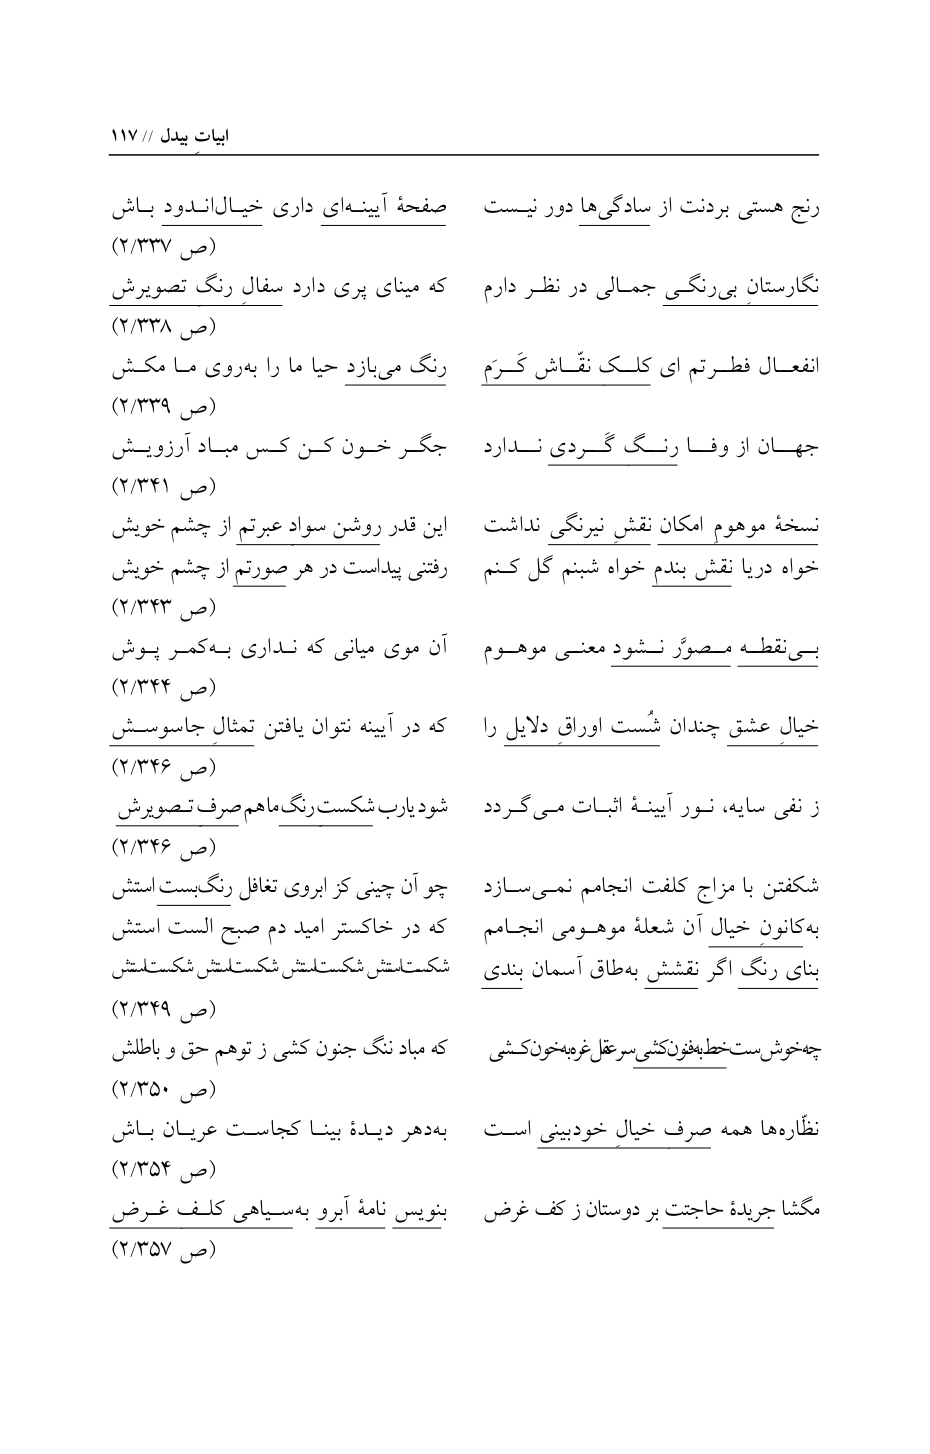 ابیاتِ بیدل // ۱۱۷
رنج هستی بردنت از سادگی‌ها دور نیست صفحهٔ آیینه‌ای داری خیال‌اندود باش
(ص ۲/۳۳۷)
نگارستانِ بی‌رنگی جمالی در نظر دارم که مینای پری دارد سفالِ رنگِ تصویرش
(ص ۲/۳۳۸)
انفعال فطرتم ای کلک نقّاش کَرَم رنگ می‌بازد حیا ما را به‌روی ما مکش
(ص ۲/۳۳۹)
جهان از وفا رنگِ گَردی ندارد جگر خون کن کس مباد آرزویش
(ص ۲/۳۴۱)
نسخهٔ موهومِ امکان نقشِ نیرنگی نداشت این قدر روشن سوادِ عبرتم از چشم خویش
خواه دریا نقش بندم خواه شبنم گل کنم رفتنی پیداست در هر صورتم از چشم خویش
(ص ۲/۳۴۳)
بی‌نقطه مصوَّر نشود معنی موهوم آن موی میانی که نداری به‌کمر پوش
(ص ۲/۳۴۴)
خیالِ عشق چندان شُست اوراقِ دلایل را که در آیینه نتوان یافتن تمثالِ جاسوسش
(ص ۲/۳۴۶)
ز نفی سایه، نور آیینهٔ اثبات می‌گردد شود یارب شکستِ رنگ ما هم صرفِ تصویرش
(ص ۲/۳۴۶)
شکفتن با مزاج کلفت انجامم نمی‌سازد چو آن چینی کز ابروی تغافل رنگ‌بست استش
به‌کانونِ خیال آن شعلهٔ موهومی انجامم که در خاکستر امید دم صبح الست استش
بنای رنگ اگر نقشش به‌طاق آسمان بندی شکست‌استش شکست‌استش شکست‌استش شکست‌استش
(ص ۲/۳۴۹)
چه خوش‌ست خط به فنون کشی سر عقل غره به خون کشی که مباد ننگ جنون کشی ز توهم حق و باطلش
(ص ۲/۳۵۰)
نظّاره‌ها همه صرفِ خیالِ خودبینی است به‌دهر دیدهٔ بینا کجاست عریان باش
(ص ۲/۳۵۴)
مگشا جریدهٔ حاجتت بر دوستان ز کف غرض بنویس نامهٔ آبرو به‌سیاهی کلفِ غرض
(ص ۲/۳۵۷)